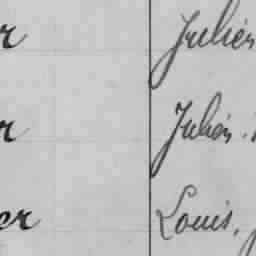 r Julien
r Julien.
er Louis,